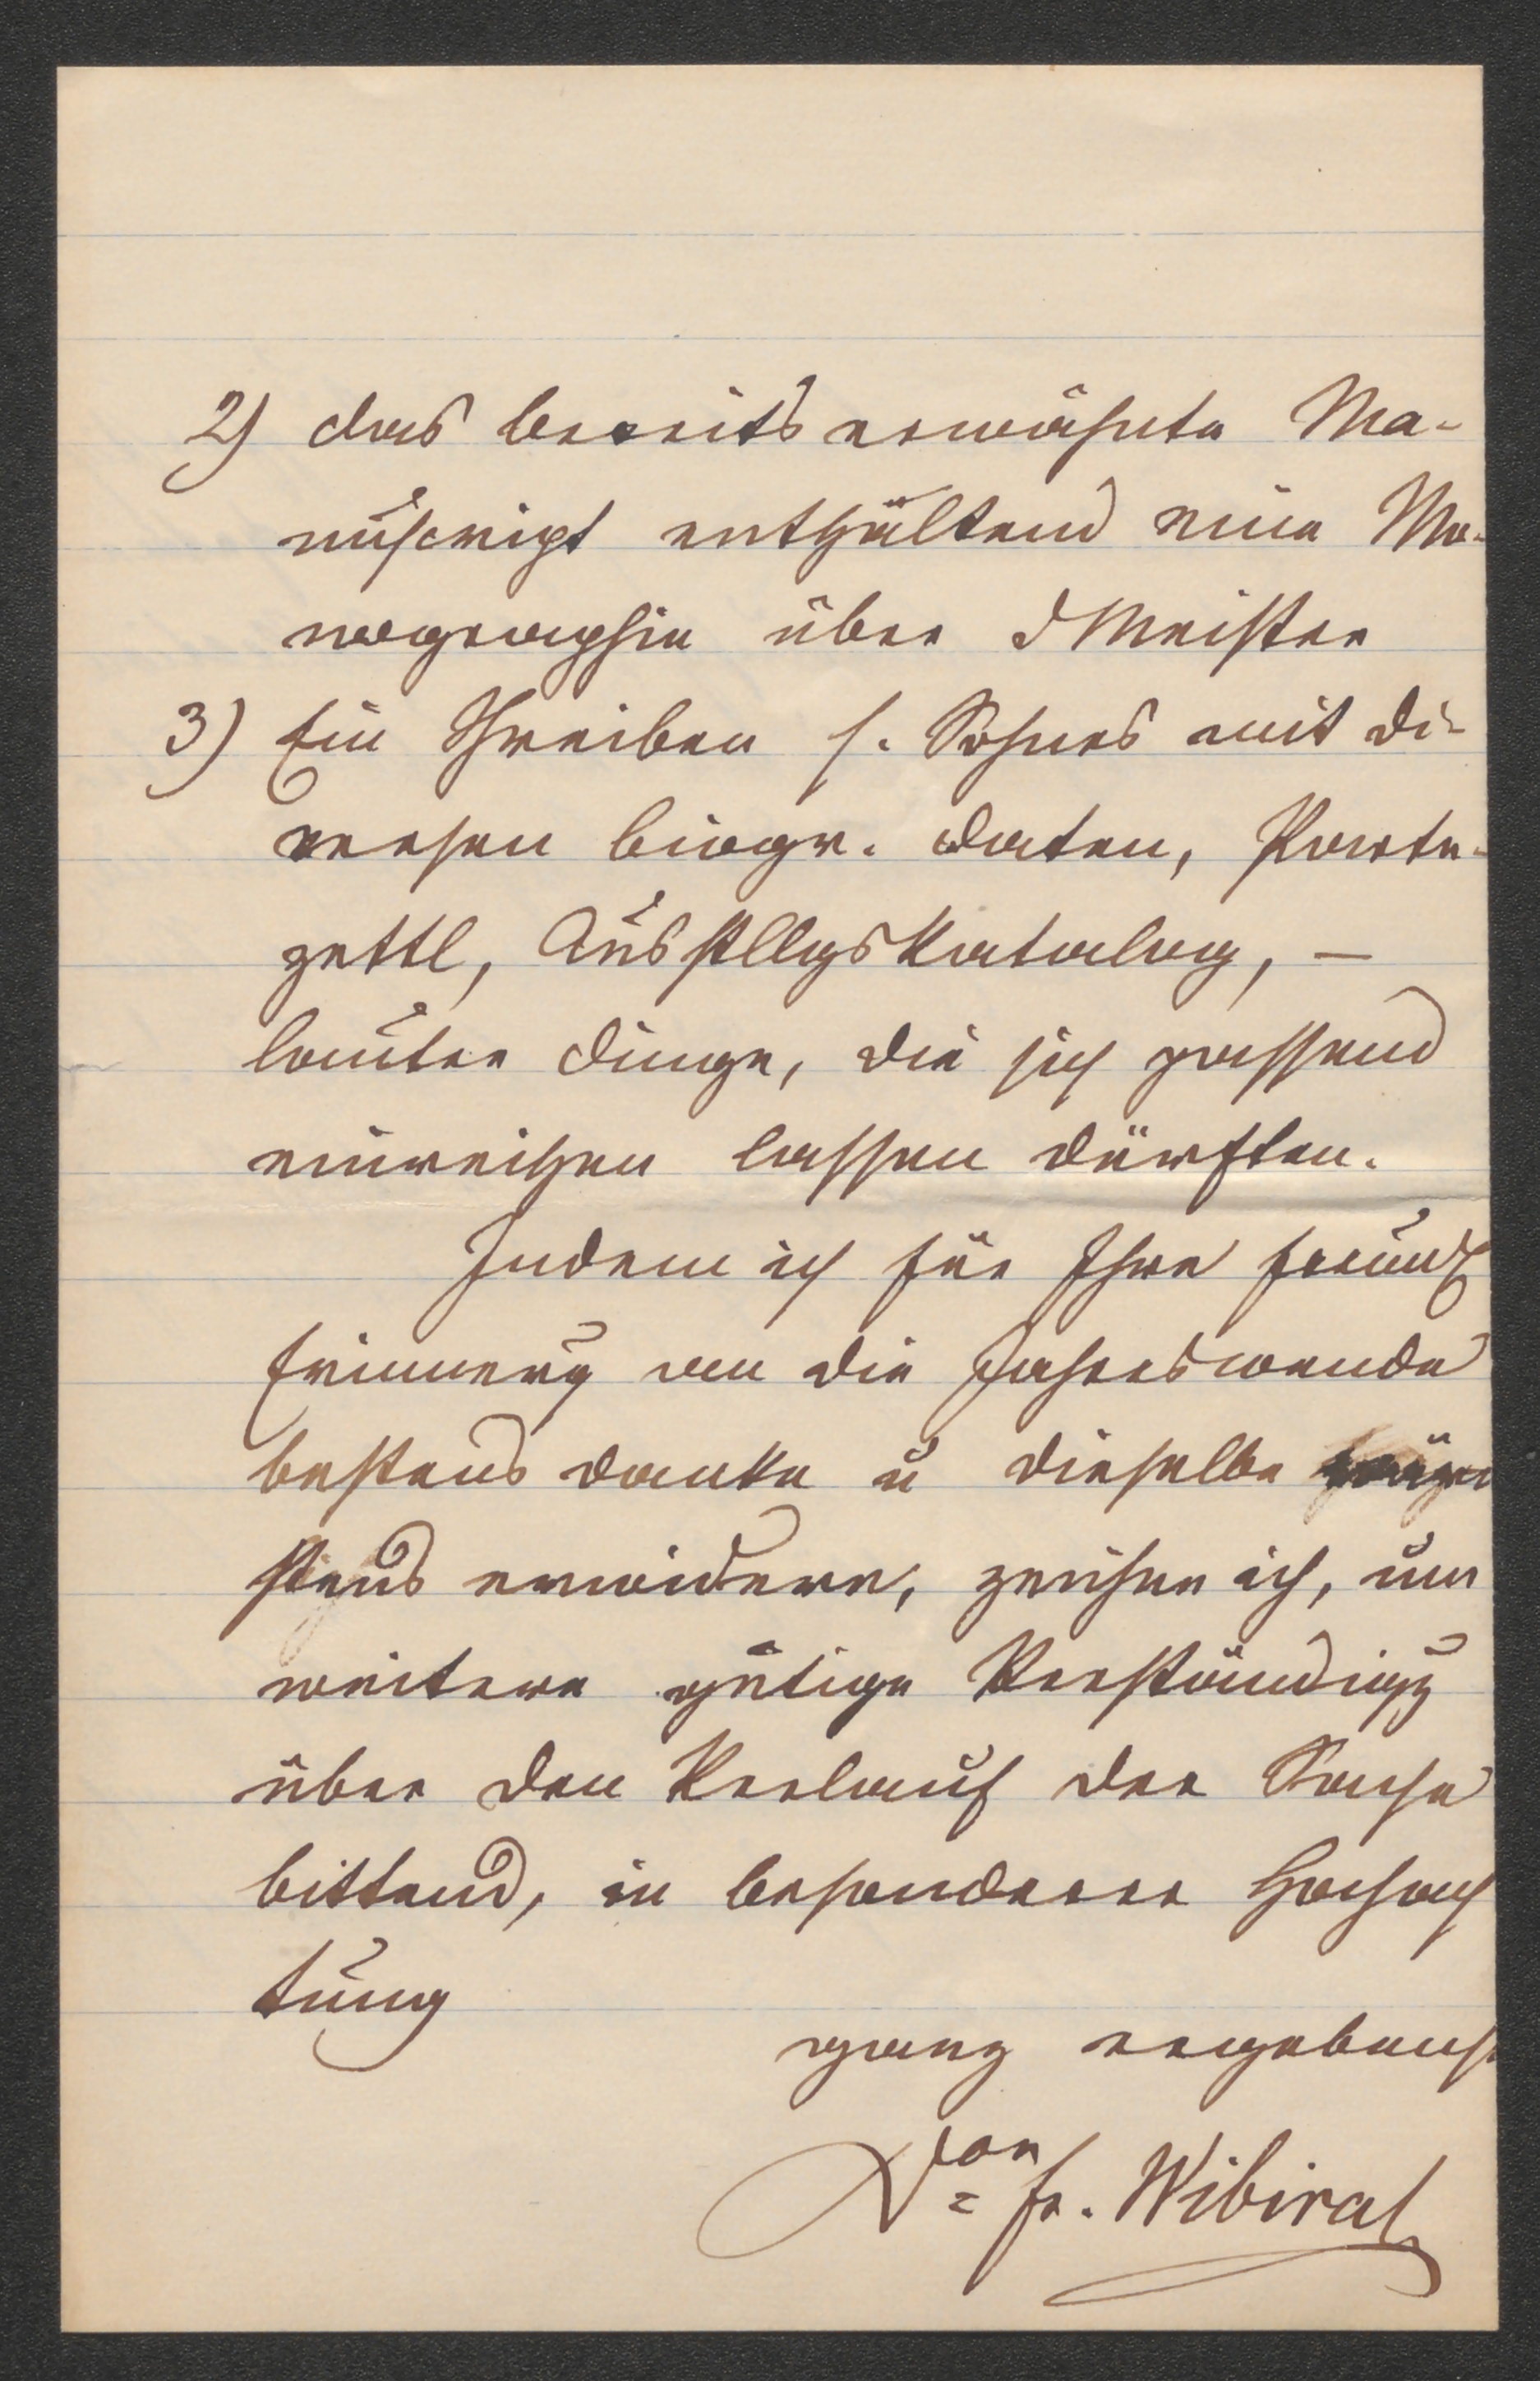 2) das bereits erwähnte Ma-
nuscript enthaltend eine Mo-
nographie über d Meister
3) Ein Schreiben s. Sohnes mit di-
versen biogr. Daten, Parte-
zettl, Ausstllgskatalog, —
lauter Dinge, die sich passend
einreihen lassen dürften.
Indem ich für Ihre freundl
Erinnerg an die Jahreswende
bestens danke u dieselbe
stens erwidere, zeichne ich, um
weitere gütige Verständigg
über den Verlauf der Sache
bittend, in besonderer Hochach
tung
ganz ergebenst
Dor Fr. Wibiral